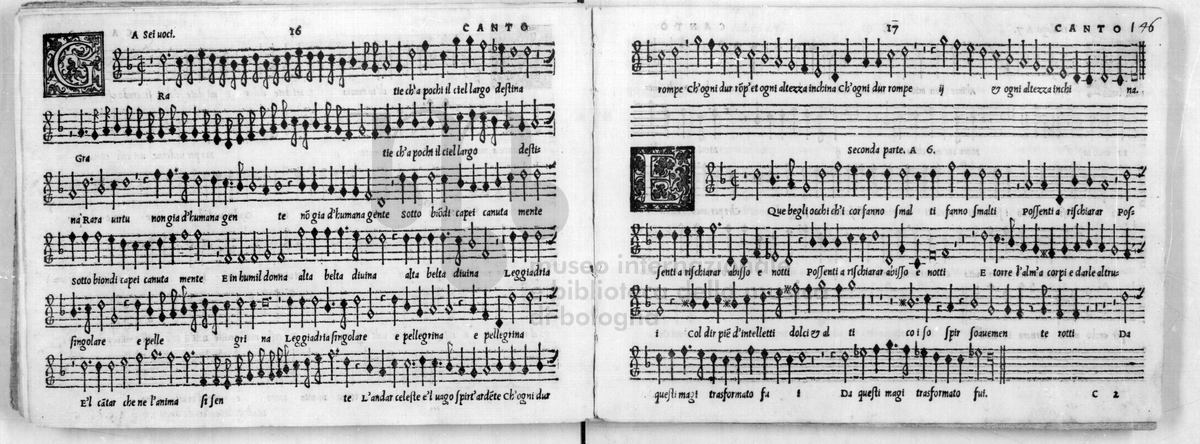 A Sei uoci. 16 CANTO
G
Ra tie ch'a pochi il ciel largo destina
Gra tie ch'a pochi il ciel largo desti-
na Rara uirtu non gia d'humana gen te nõ gia d'humana gente sotto biõdi capei canuta mente
Sotto biondi capei canuta mente E in humil donna alta belta diuina alta belta diuina Leggiadria
singolare e pelle gri na Leggiadria singolare e pellegrina e pellegrina
E'l cãtar che ne l'anima si sen te L'andar celeste e'l uago spirt'ardẽte Ch'ogni dur
17 CANTO 46
rompe Ch'ogni dur rõp' et ogni altezza inchina Ch'ogni dur rompe ij & ogni altezza inchi na.
Seconda parte. A 6.
E
Que begli occhi ch'i cor fanno smal ti fanno smalti Possenti a rischiarar Pos-
senti a rischiarar abisso e notti Possenti a rischiarar abisso e notti E torre l'alm'a corpi e darle altrui
i Col dir piẽ d'intelletti dolci & al ti co i so spir soauemen te rotti Da
questi magi trasformato fu i Da questi magi trasformato fui.
C 2
museo internazionale
e biblioteca della musica
di bologna